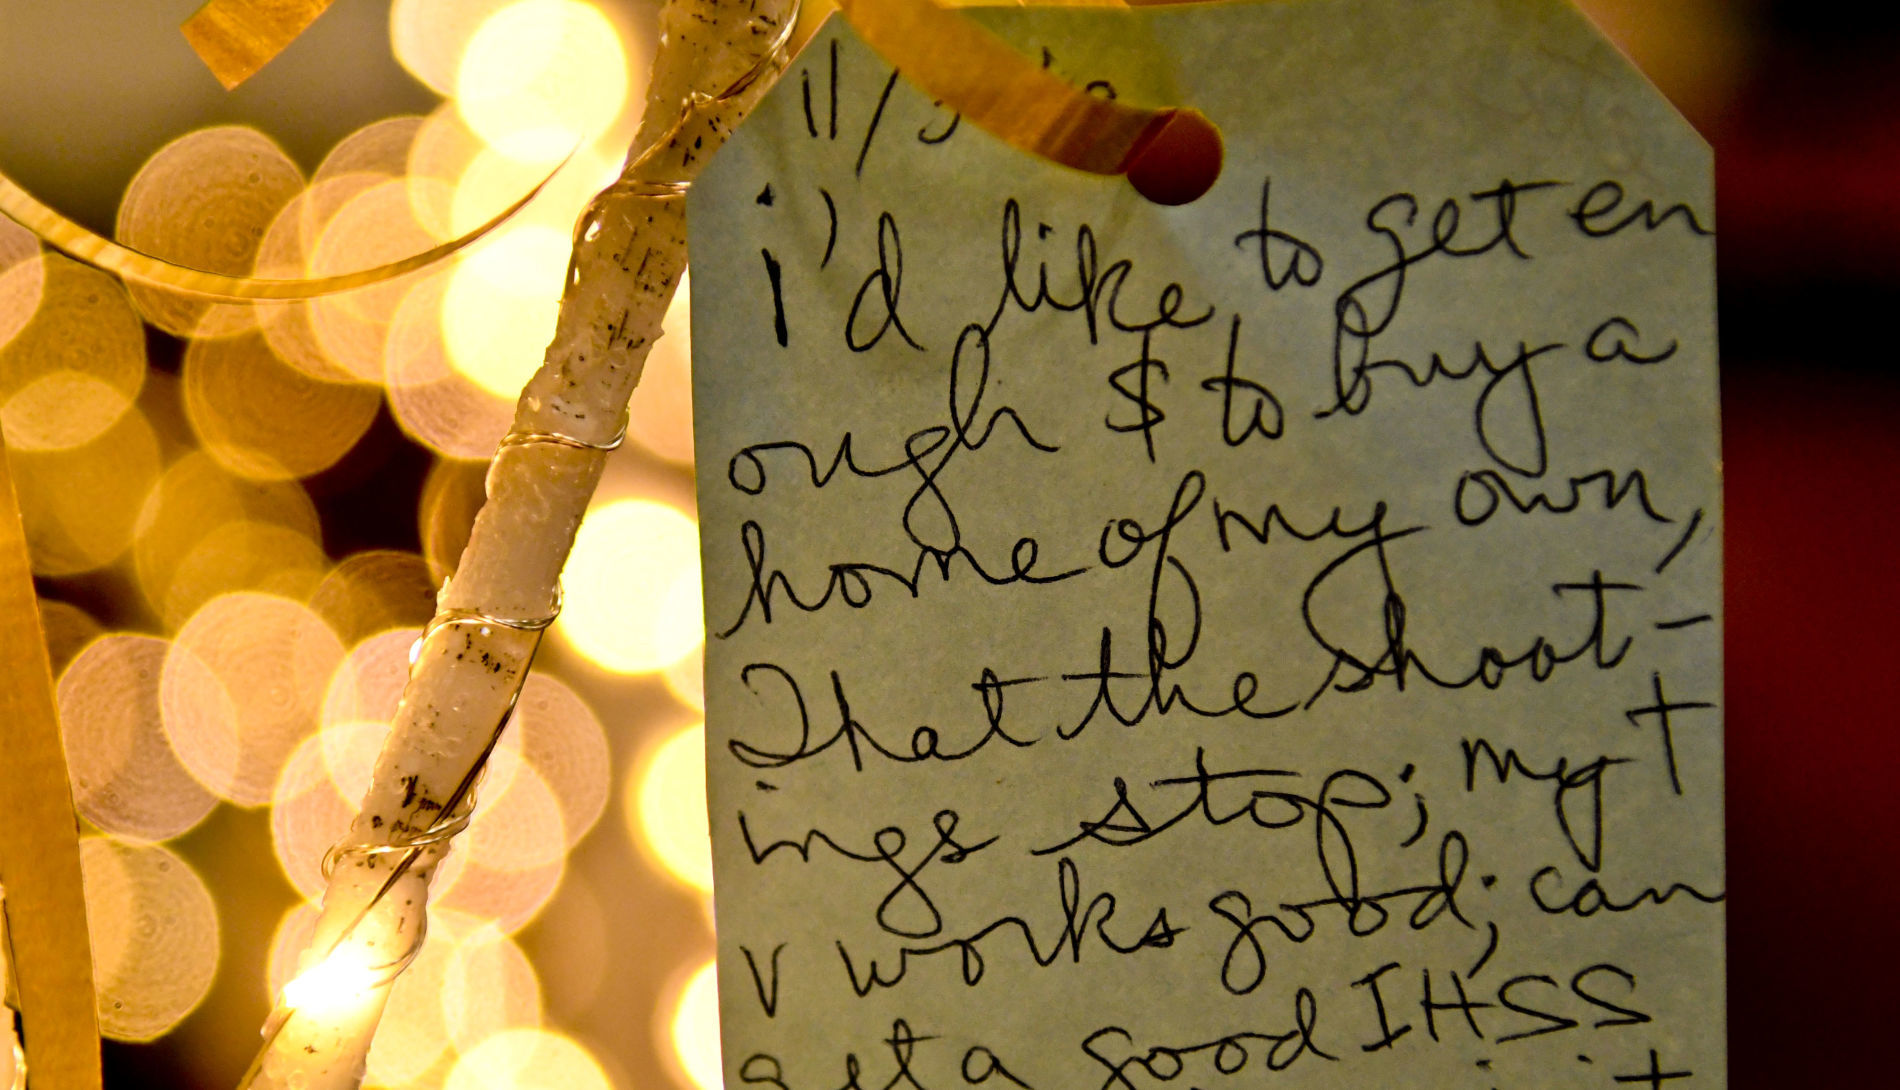 11/
i'd like to get en
ough $ to buy a
home of my own,
That the shoot-
ings stop; my T
V works good; can
get a good IHSS